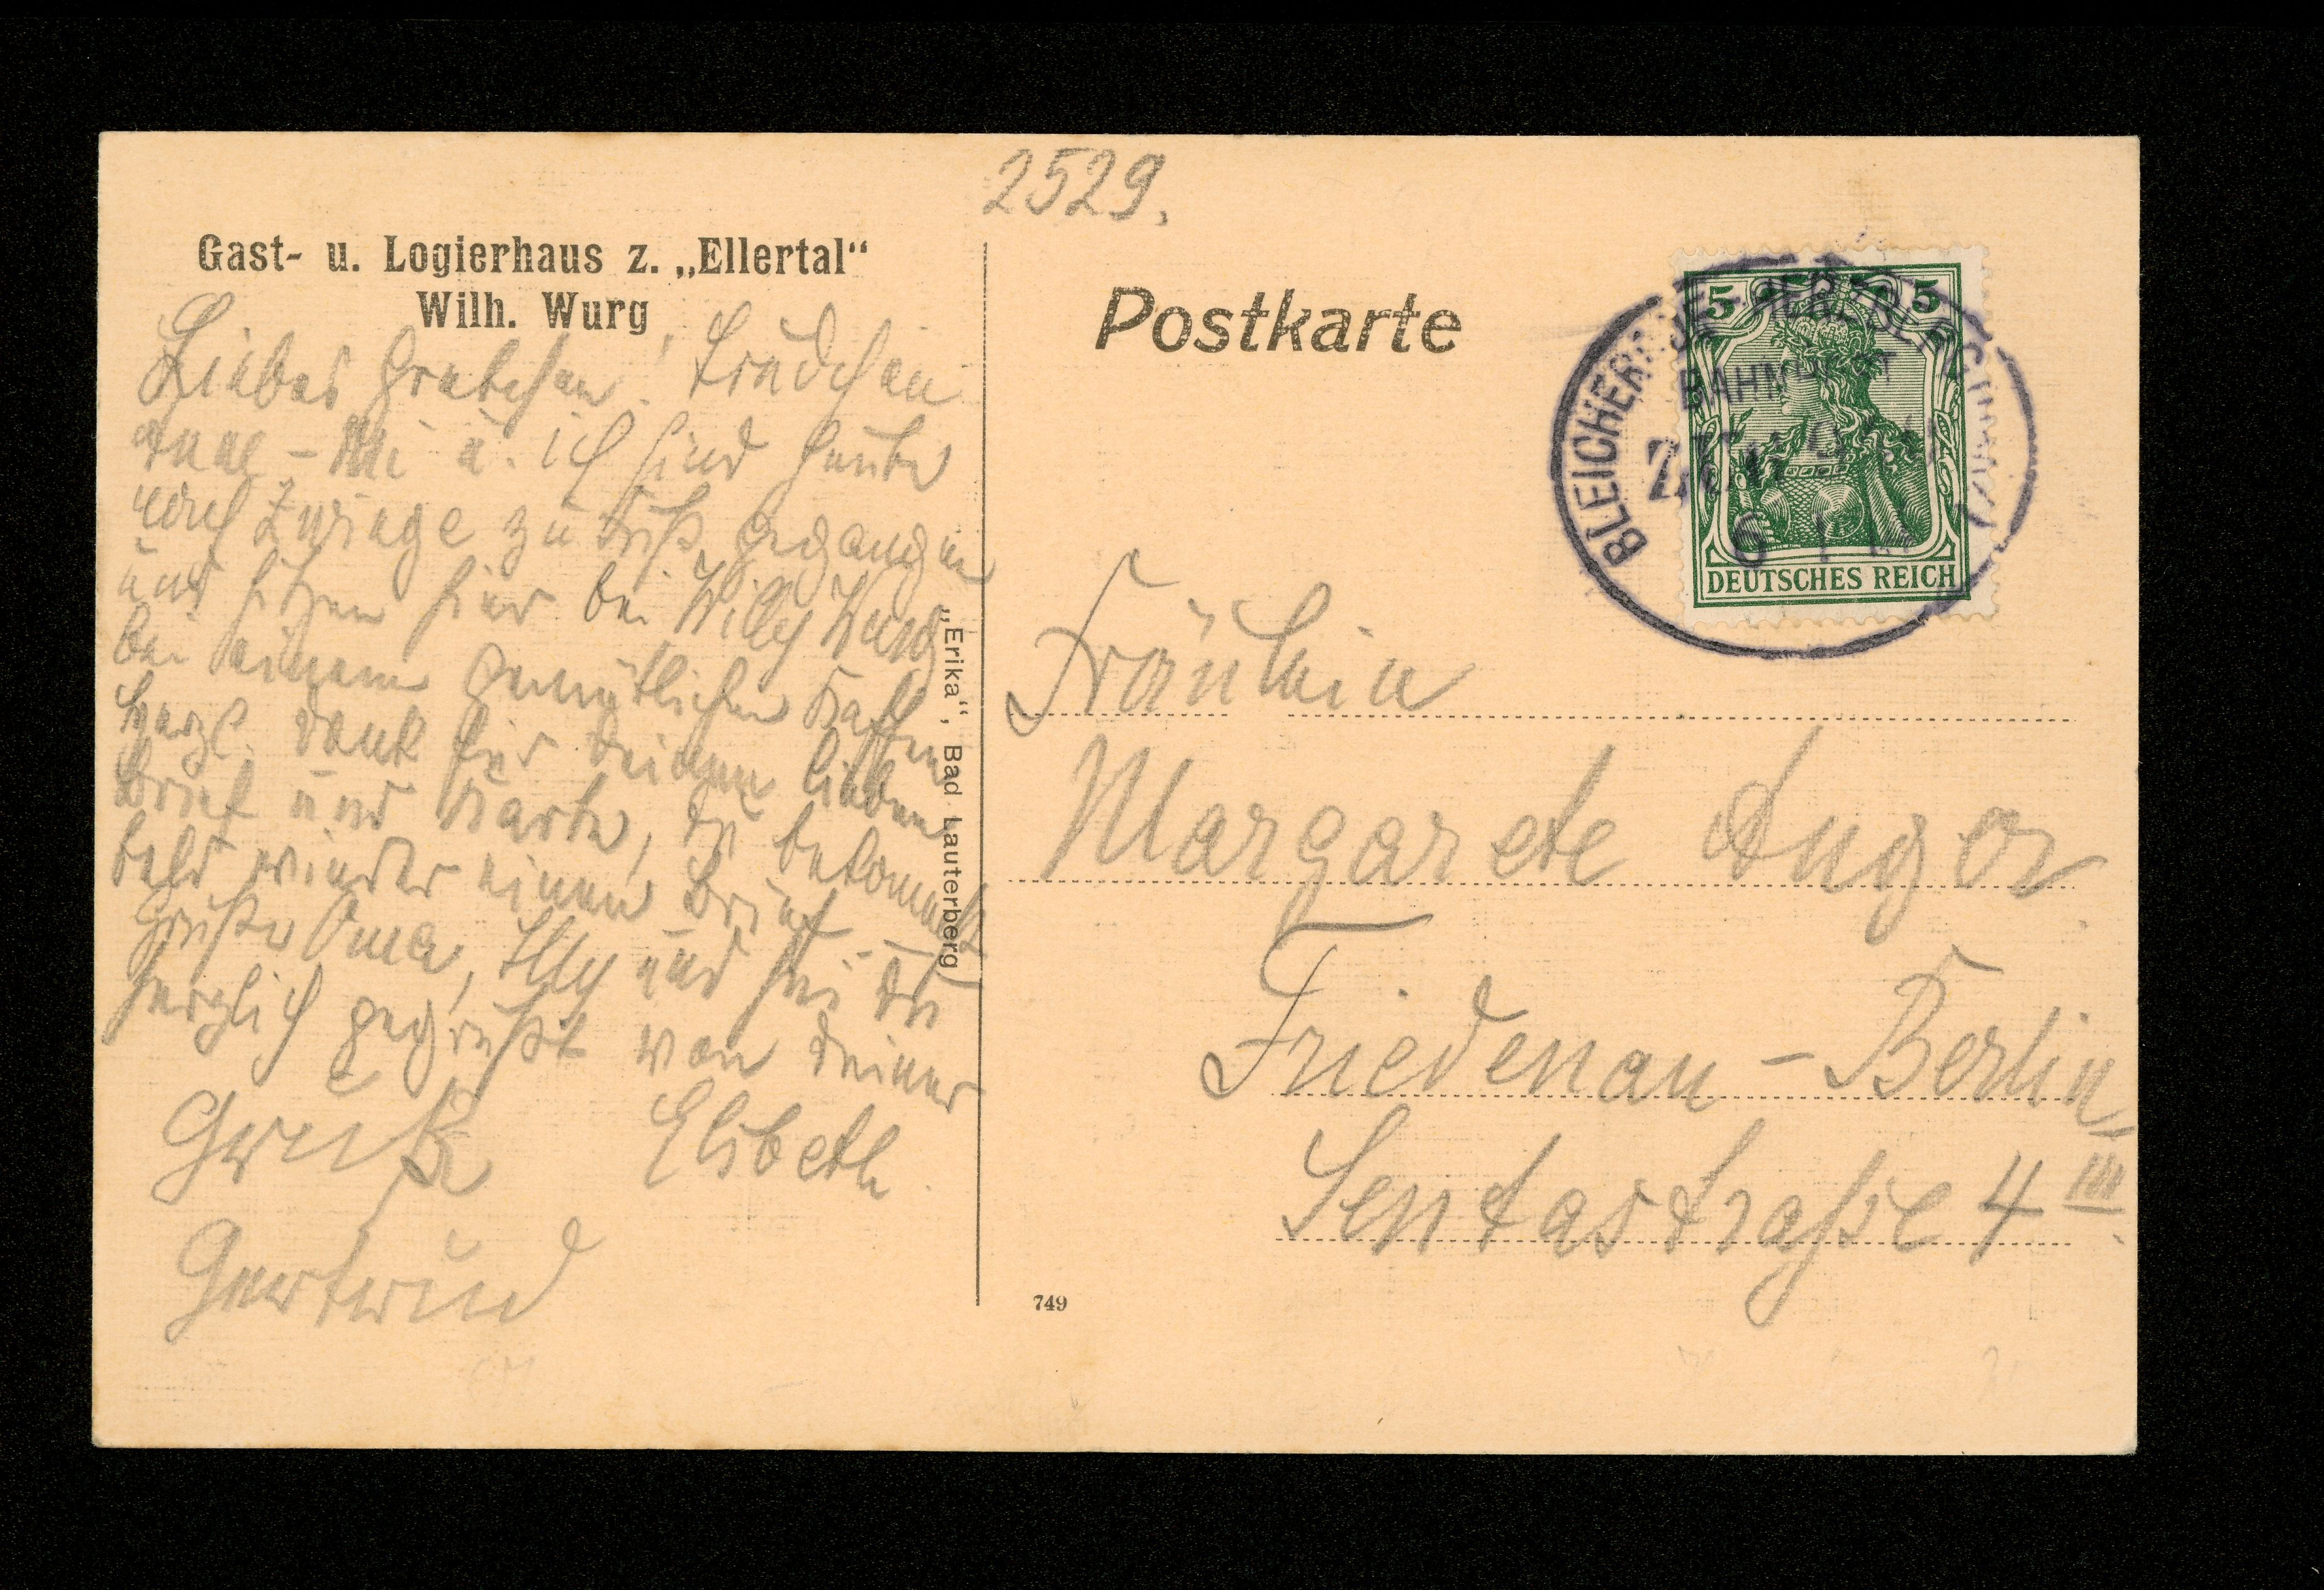 2529.
Gast- u. Logierhaus z. „Ellertal“
Wilh. Wurg
Liebes Gretchen! Trudchen
Anne-Mi u. ich sind heute
nach Zwinge zu Fuß gegangen
und sitzen hier bei Willy Wurg
bei einem gemütlichen Kaffee
Herzl. Dank für deinen lieben
Brief und Karte, du bekommst
bald wieder einen Brief.
Grüße Oma, Elly und sei du
herzlich gegrüßt von deiner
Gruß Elsbeth.
Gertrud
„Erika“, Bad Lauterberg
Postkarte
5 5
DEUTSCHES REICH
BLEICHERODE-HERZBERG
BAHNPOST
ZUG
Fräulein
Margarete Anger
Friedenau-Berlin
Sentastraße 4 III.
749